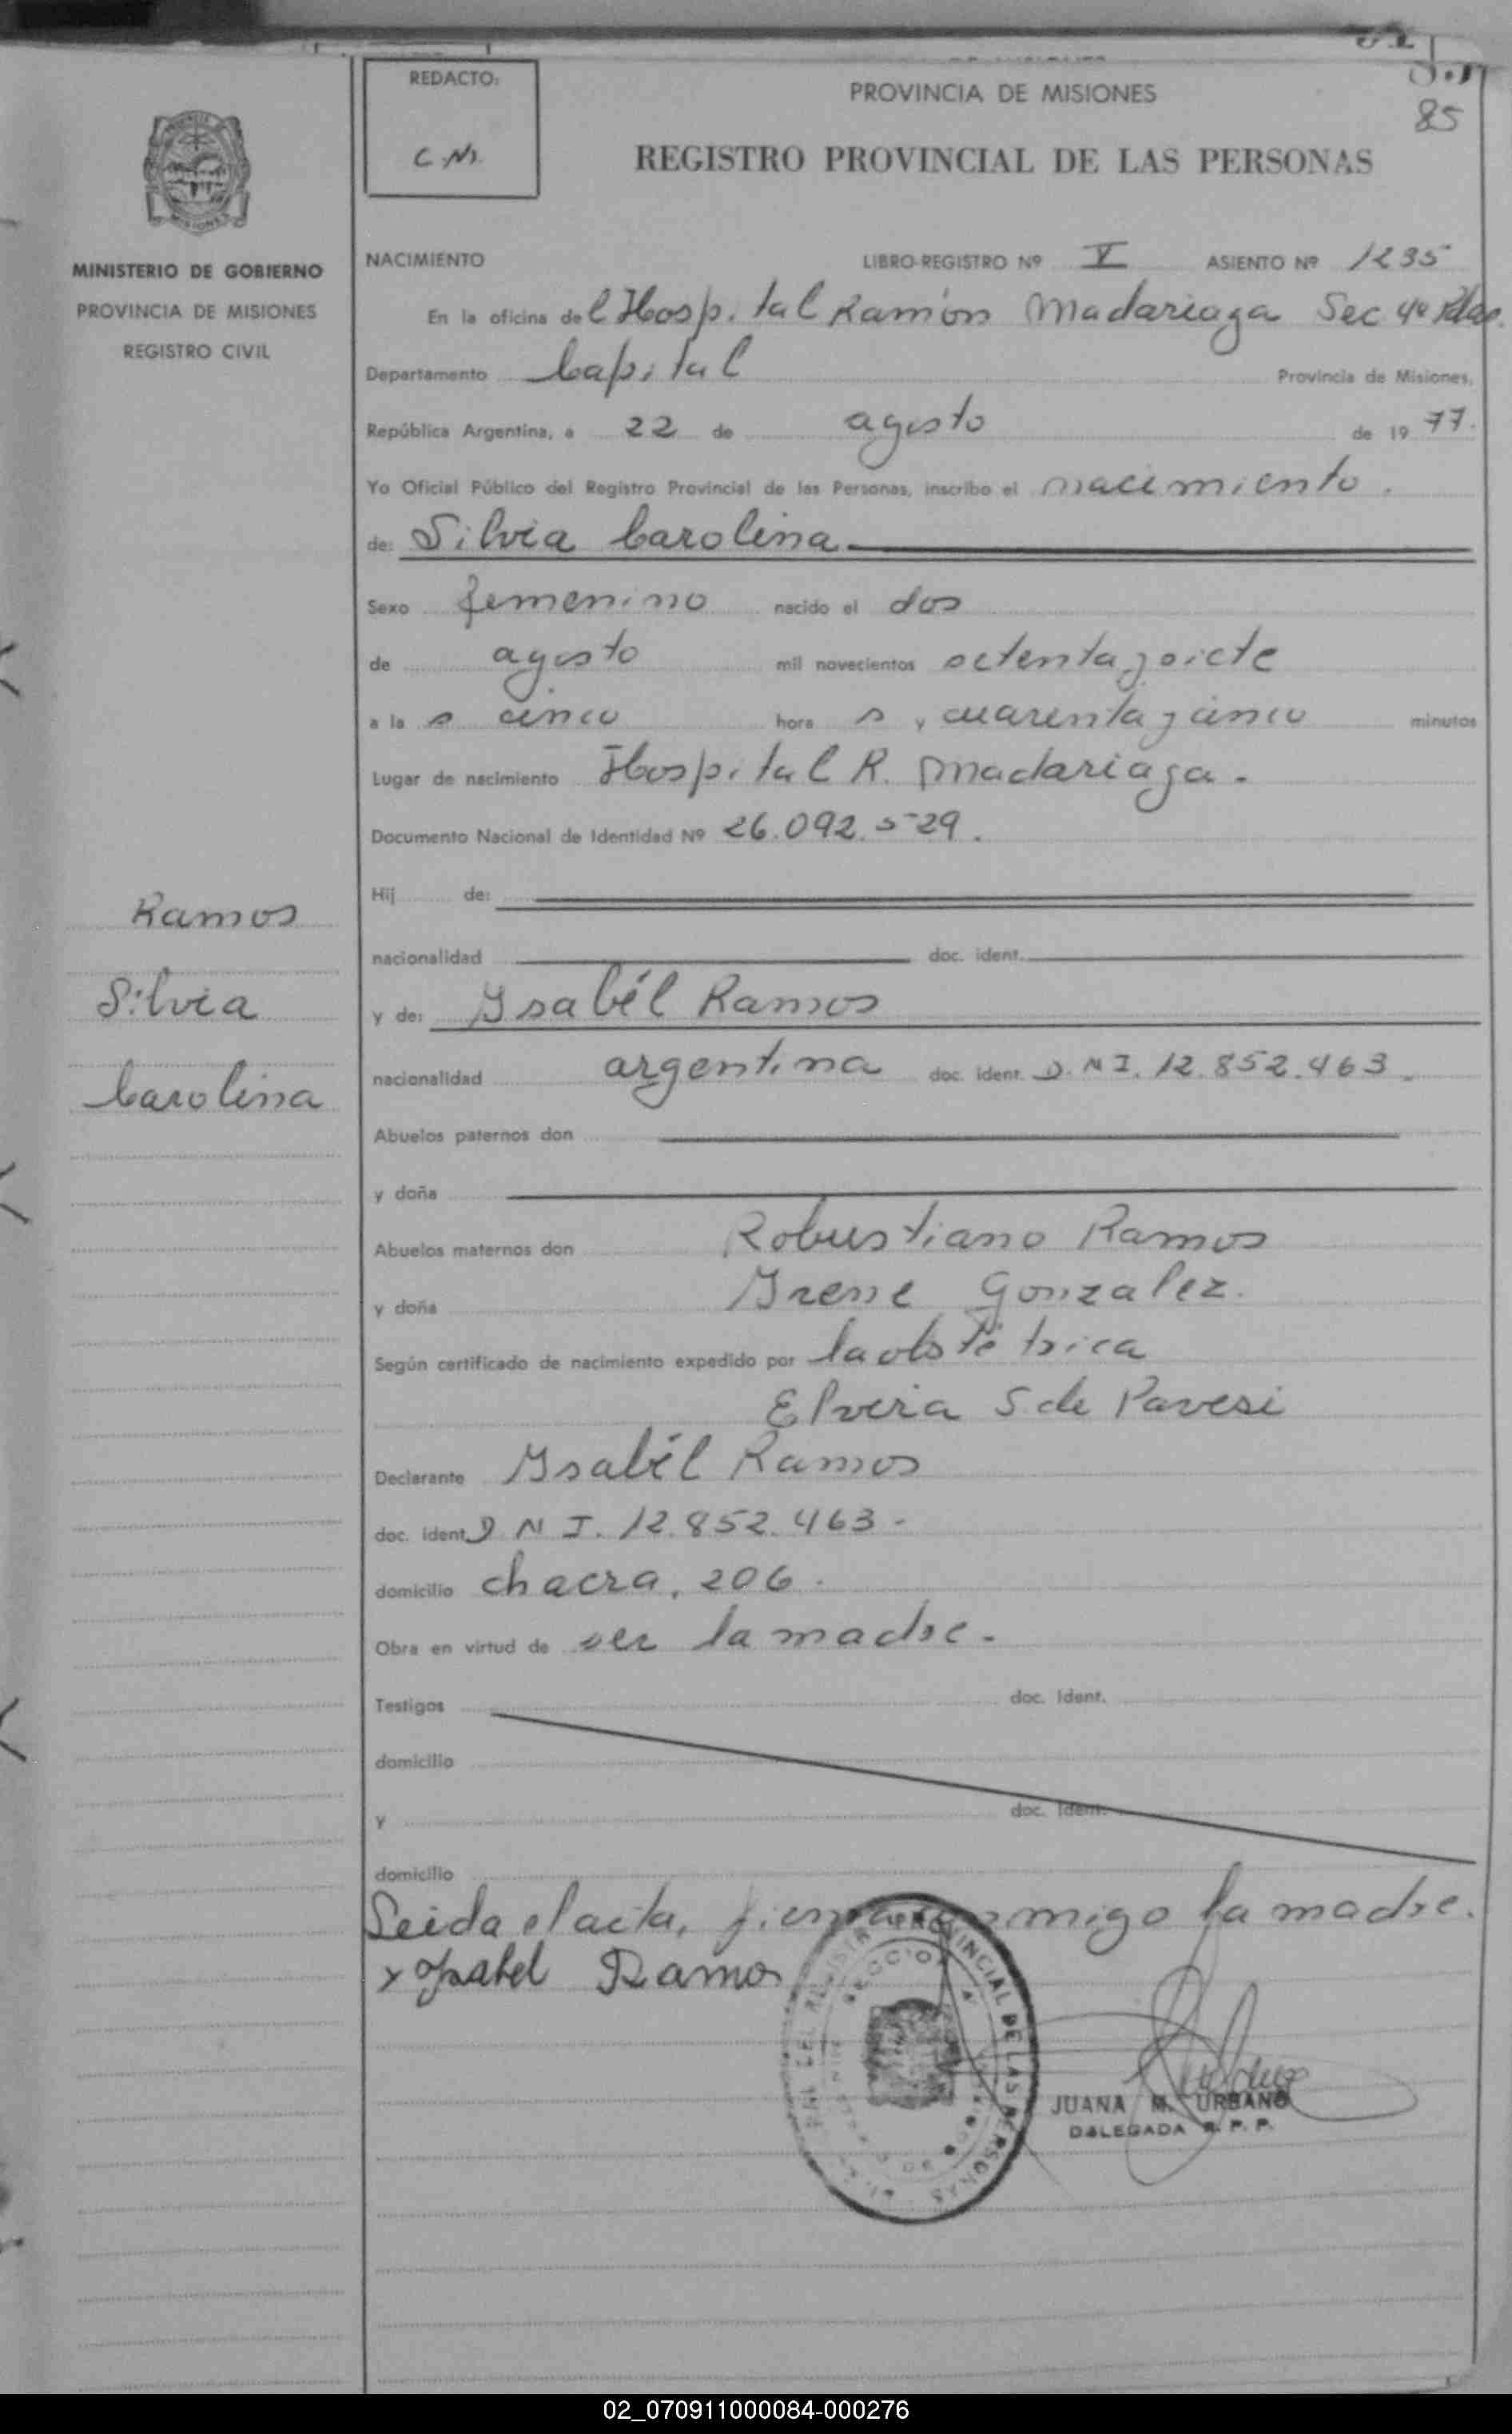 85
REDACTO:
C.N.
PROVINCIA DE MISIONES
REGISTRO PROVINCIAL DE LAS PERSONAS
MINISTERIO DE GOBIERNO
PROVINCIA DE MISIONES
REGISTRO CIVIL
NACIMIENTO LIBRO-REGISTRO Nº V ASIENTO Nº 1235
En la oficina del Hospital Ramón Madariaga Sec 4ª Pdas.
Departamento Capital Provincia de Misiones,
República Argentina, a 22 de agosto de 1977.
Yo Oficial Público del Registro Provincial de las Personas, inscribo el nacimiento.
de: Silvia Carolina
Sexo femenino nacido el dos
de agosto mil novecientos setenta y siete
a la s cinco hora s y cuarenta y cinco minutos
Lugar de nacimiento Hospital R. Madariaga.
Documento Nacional de Identidad Nº 26.092.529.
Hij de:
nacionalidad doc. ident.
Ramos
Silvia
Carolina
y de: Ysabél Ramos
nacionalidad argentina doc. ident. D.N.I. 12.852.463.
Abuelos paternos don
y doña
Abuelos maternos don Robustiano Ramos
y doña Yrene Gonzalez.
Según certificado de nacimiento expedido por la obstétrica
Elvira S de Pavesi
Declarante Ysabél Ramos
doc. ident. D N I. 12.852.463.
domicilio chacra, 206.
Obra en virtud de ser la madre.
Testigos doc. Ident.
domicilio
y doc. Ident.
domicilio
Leida el acta, firma conmigo la madre.
x Ysabel Ramos
PROVINCIAL DE LAS PERSONAS
SECCION
JUANA M. URBANO
DELEGADA R. P. P.
02_070911000084-000276